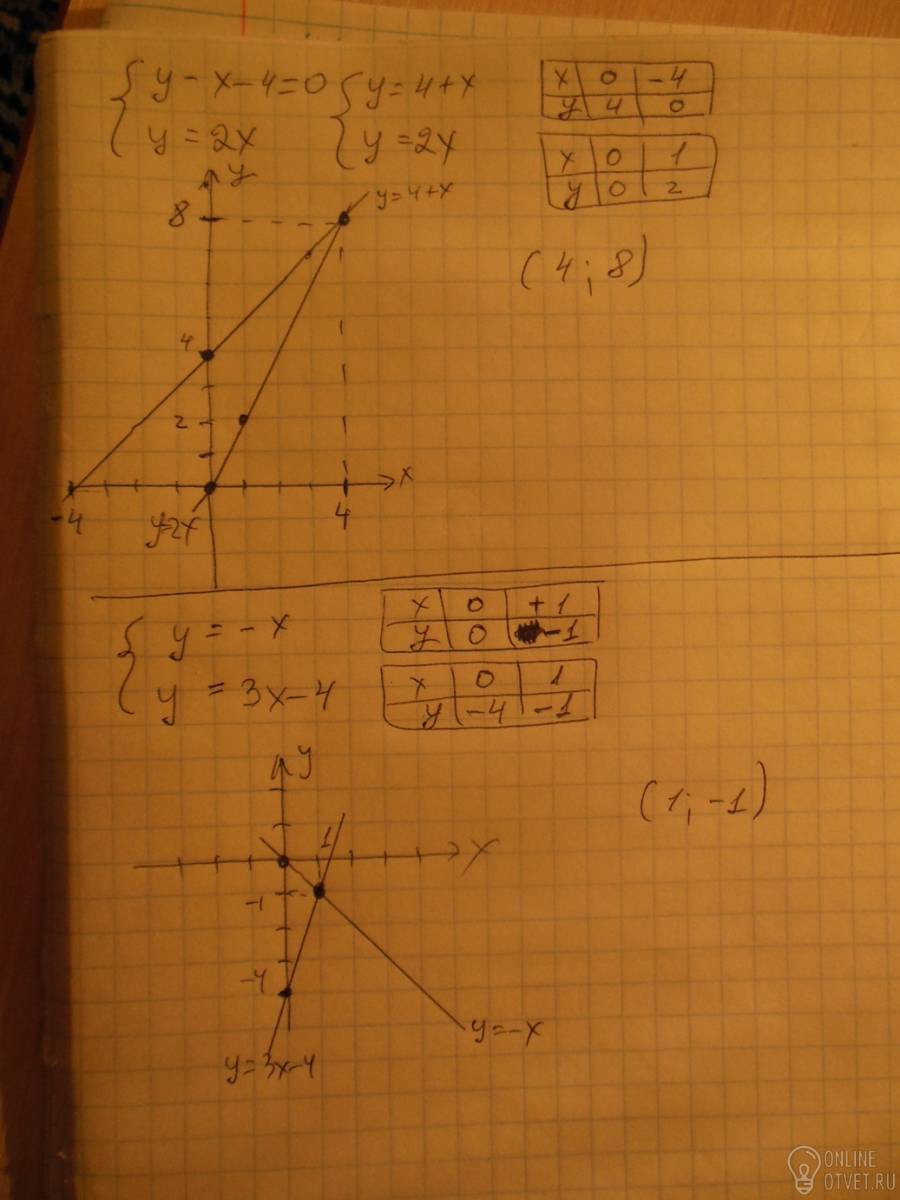 { y - x - 4 = 0 { y = 4 + x
{ y = 2x { y = 2x
x | 0 | -4
y | 4 | 0
x | 0 | 1
y | 0 | 2
y
8
y = 4 + x
(4; 8)
4
2
x
-4
4
y=2x
{ y = - x
{ y = 3x - 4
x | 0 | + 1
y | 0 | -1
x | 0 | 1
y | -4 | -1
y
(1; -1)
1
x
-1
-4
y = -x
y = 3x - 4
ONLINE
OTVET.RU